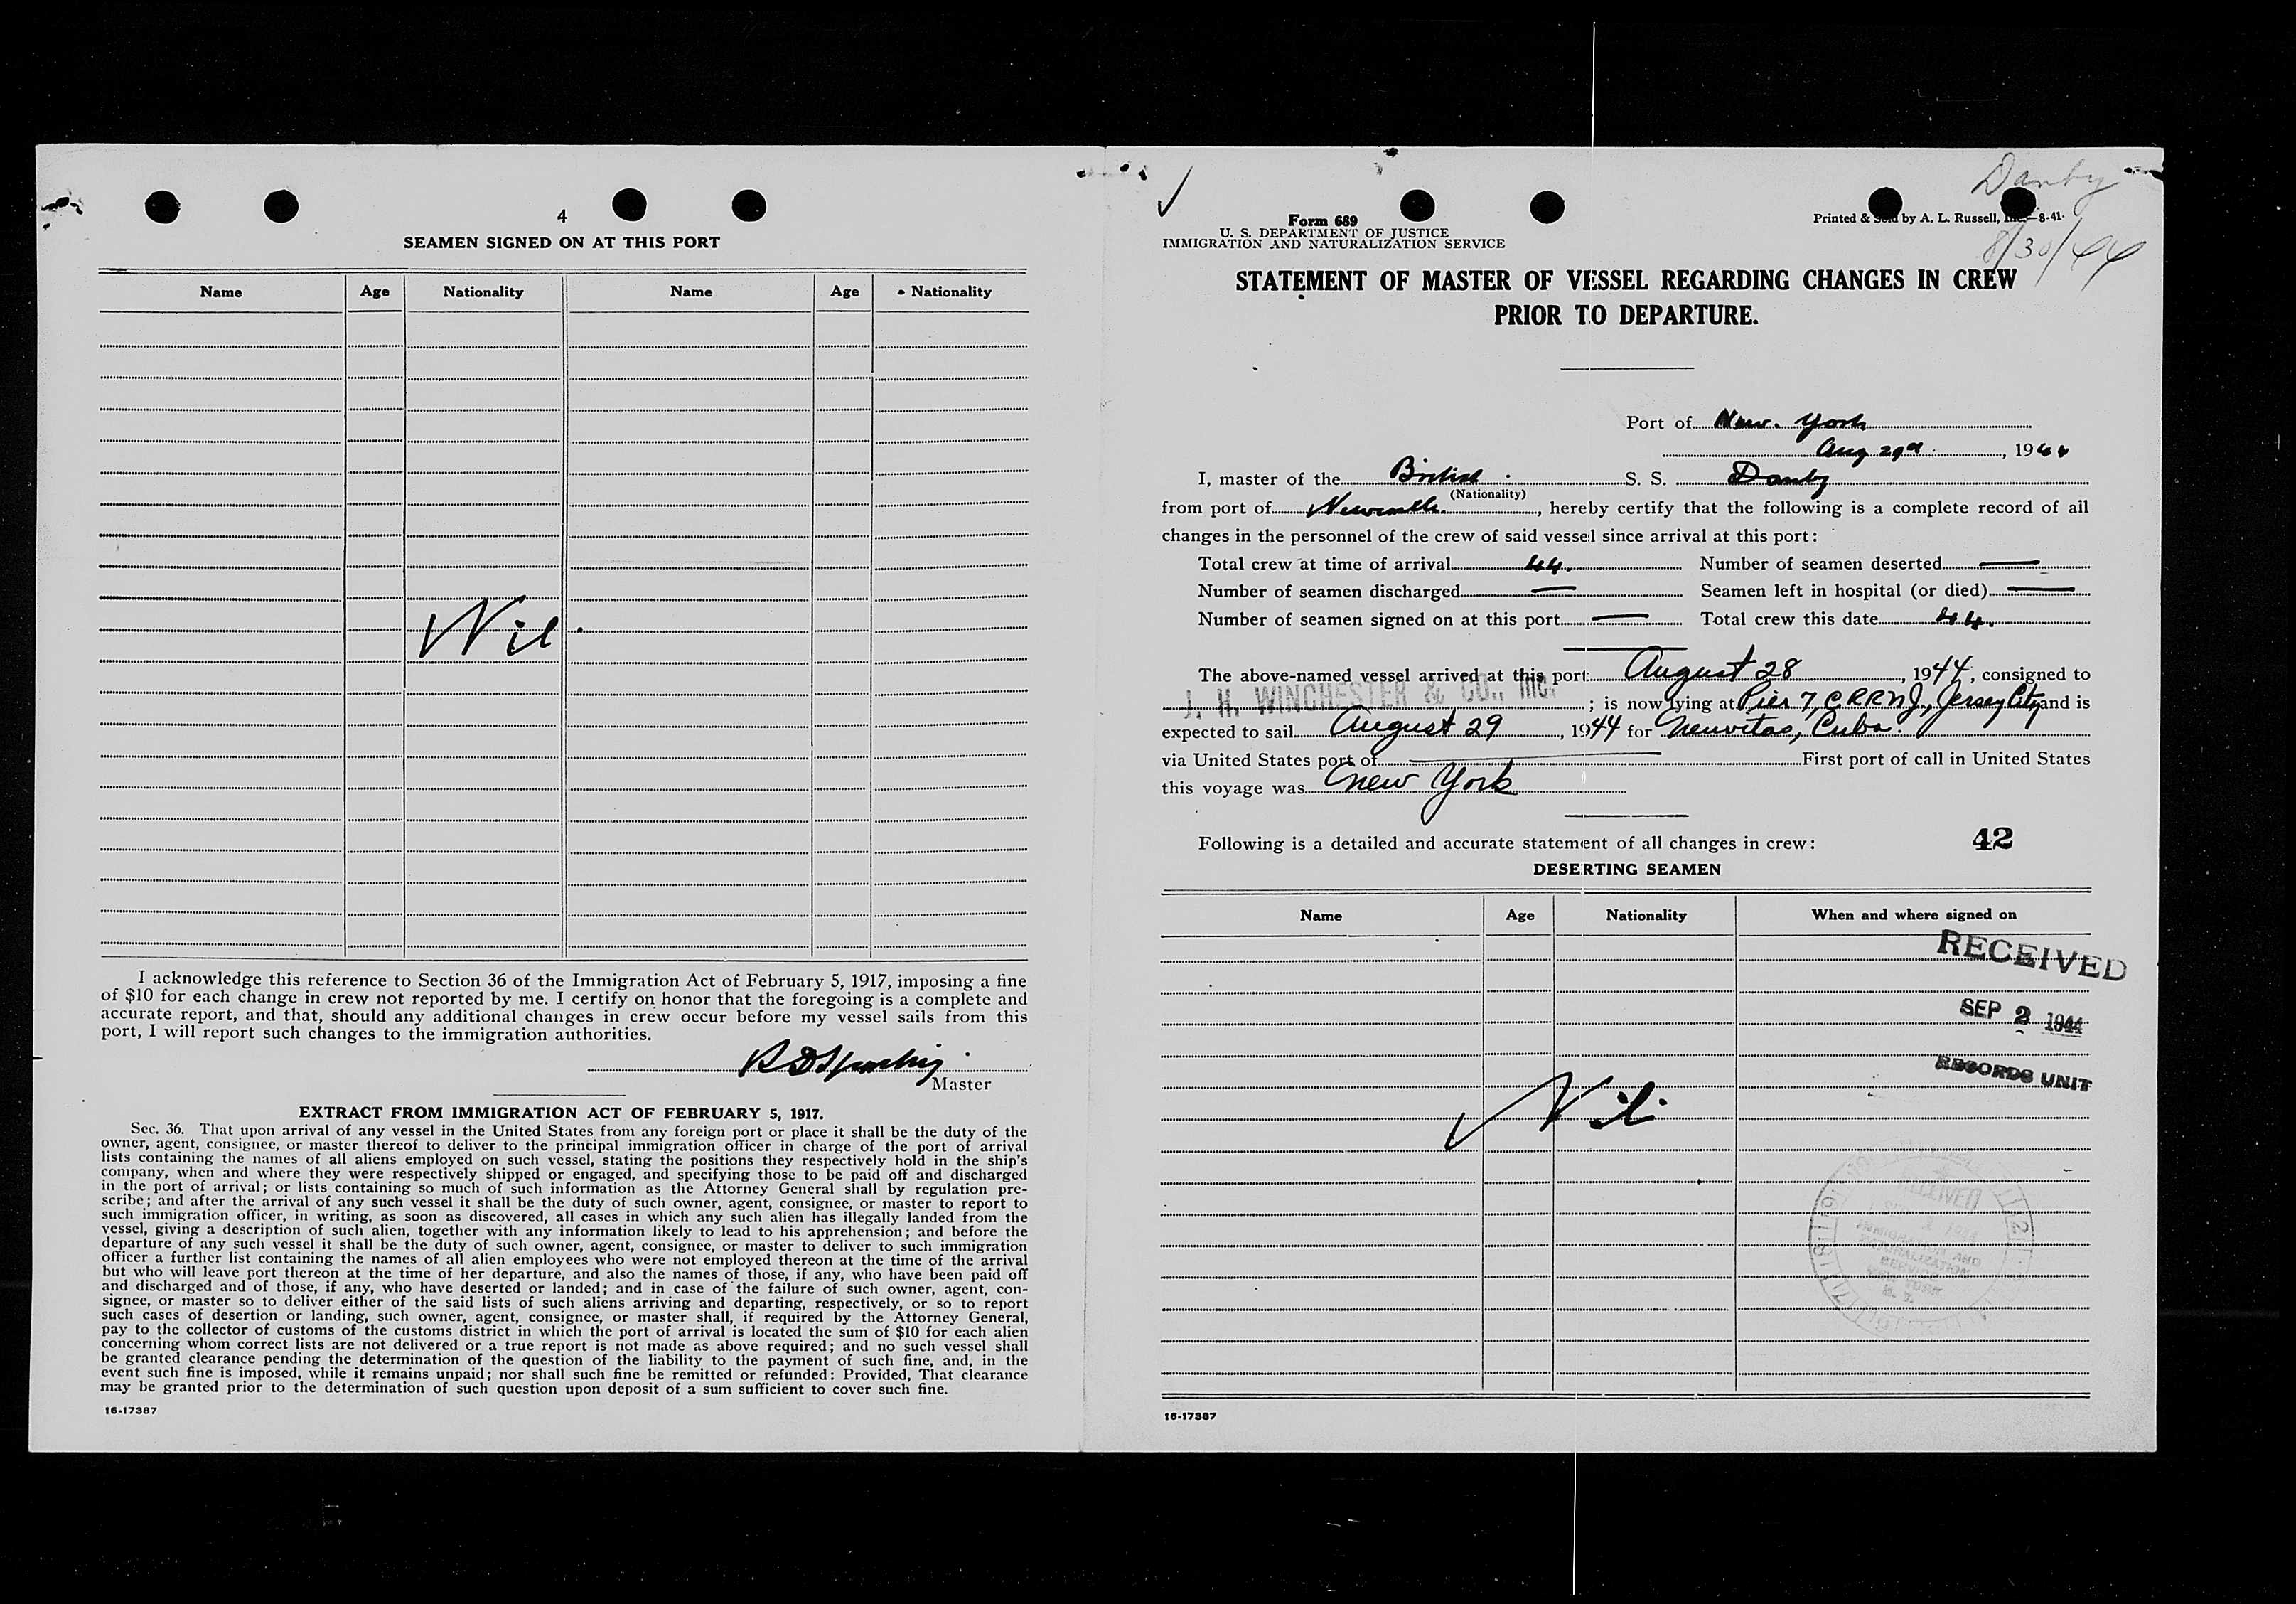 4
SEAMEN SIGNED ON AT THIS PORT
Name Age Nationality Name Age Nationality
Nil.
I acknowledge this reference to Section 36 of the Immigration Act of February 5, 1917, imposing a fine
of $10 for each change in crew not reported by me. I certify on honor that the foregoing is a complete and
accurate report, and that, should any additional changes in crew occur before my vessel sails from this
port, I will report such changes to the immigration authorities.
Master
EXTRACT FROM IMMIGRATION ACT OF FEBRUARY 5, 1917.
Sec. 36. That upon arrival of any vessel in the United States from any foreign port or place it shall be the duty of the
owner, agent, consignee, or master thereof to deliver to the principal immigration officer in charge of the port of arrival
lists containing the names of all aliens employed on such vessel, stating the positions they respectively hold in the ship's
company, when and where they were respectively shipped or engaged, and specifying those to be paid off and discharged
in the port of arrival; or lists containing so much of such information as the Attorney General shall by regulation pre-
scribe; and after the arrival of any such vessel it shall be the duty of such owner, agent, consignee, or master to report to
such immigration officer, in writing, as soon as discovered, all cases in which any such alien has illegally landed from the
vessel, giving a description of such alien, together with any information likely to lead to his apprehension; and before the
departure of any such vessel it shall be the duty of such owner, agent, consignee, or master to deliver to such immigration
officer a further list containing the names of all alien employees who were not employed thereon at the time of the arrival
but who will leave port thereon at the time of her departure, and also the names of those, if any, who have been paid off
and discharged and of those, if any, who have deserted or landed; and in case of the failure of such owner, agent, con-
signee, or master so to deliver either of the said lists of such aliens arriving and departing, respectively, or so to report
such cases of desertion or landing, such owner, agent, consignee, or master shall, if required by the Attorney General,
pay to the collector of customs of the customs district in which the port of arrival is located the sum of $10 for each alien
concerning whom correct lists are not delivered or a true report is not made as above required; and no such vessel shall
be granted clearance pending the determination of the question of the liability to the payment of such fine, and, in the
event such fine is imposed, while it remains unpaid; nor shall such fine be remitted or refunded: Provided, That clearance
may be granted prior to the determination of such question upon deposit of a sum sufficient to cover such fine.
16-17387
Danby
8/30/44
Form 689
U. S. DEPARTMENT OF JUSTICE
IMMIGRATION AND NATURALIZATION SERVICE
Printed & Sold by A. L. Russell, Inc.—8-41
STATEMENT OF MASTER OF VESSEL REGARDING CHANGES IN CREW
PRIOR TO DEPARTURE.
Port of New. York
Aug 29th, 1944
I, master of the British S. S. Danby
(Nationality)
from port of Newcastle, hereby certify that the following is a complete record of all
changes in the personnel of the crew of said vessel since arrival at this port:
Total crew at time of arrival 44. Number of seamen deserted —
Number of seamen discharged — Seamen left in hospital (or died) —
Number of seamen signed on at this port — Total crew this date 44.
The above-named vessel arrived at this port August 28, 1944, consigned to
J. H. WINCHESTER & CO., INC. ; is now lying at Pier 7, C.R.R.N.J., Jersey City and is
expected to sail August 29, 1944 for Neuvitas, Cuba.
via United States port of — First port of call in United States
this voyage was New York
Following is a detailed and accurate statement of all changes in crew: 42
DESERTING SEAMEN
Name Age Nationality When and where signed on
RECEIVED
SEP 2 1944
RECORDS UNIT
Nil
RECEIVED
IMMIGRATION AND
NATURALIZATION
SERVICE
NEW YORK
N. Y.
16-17387